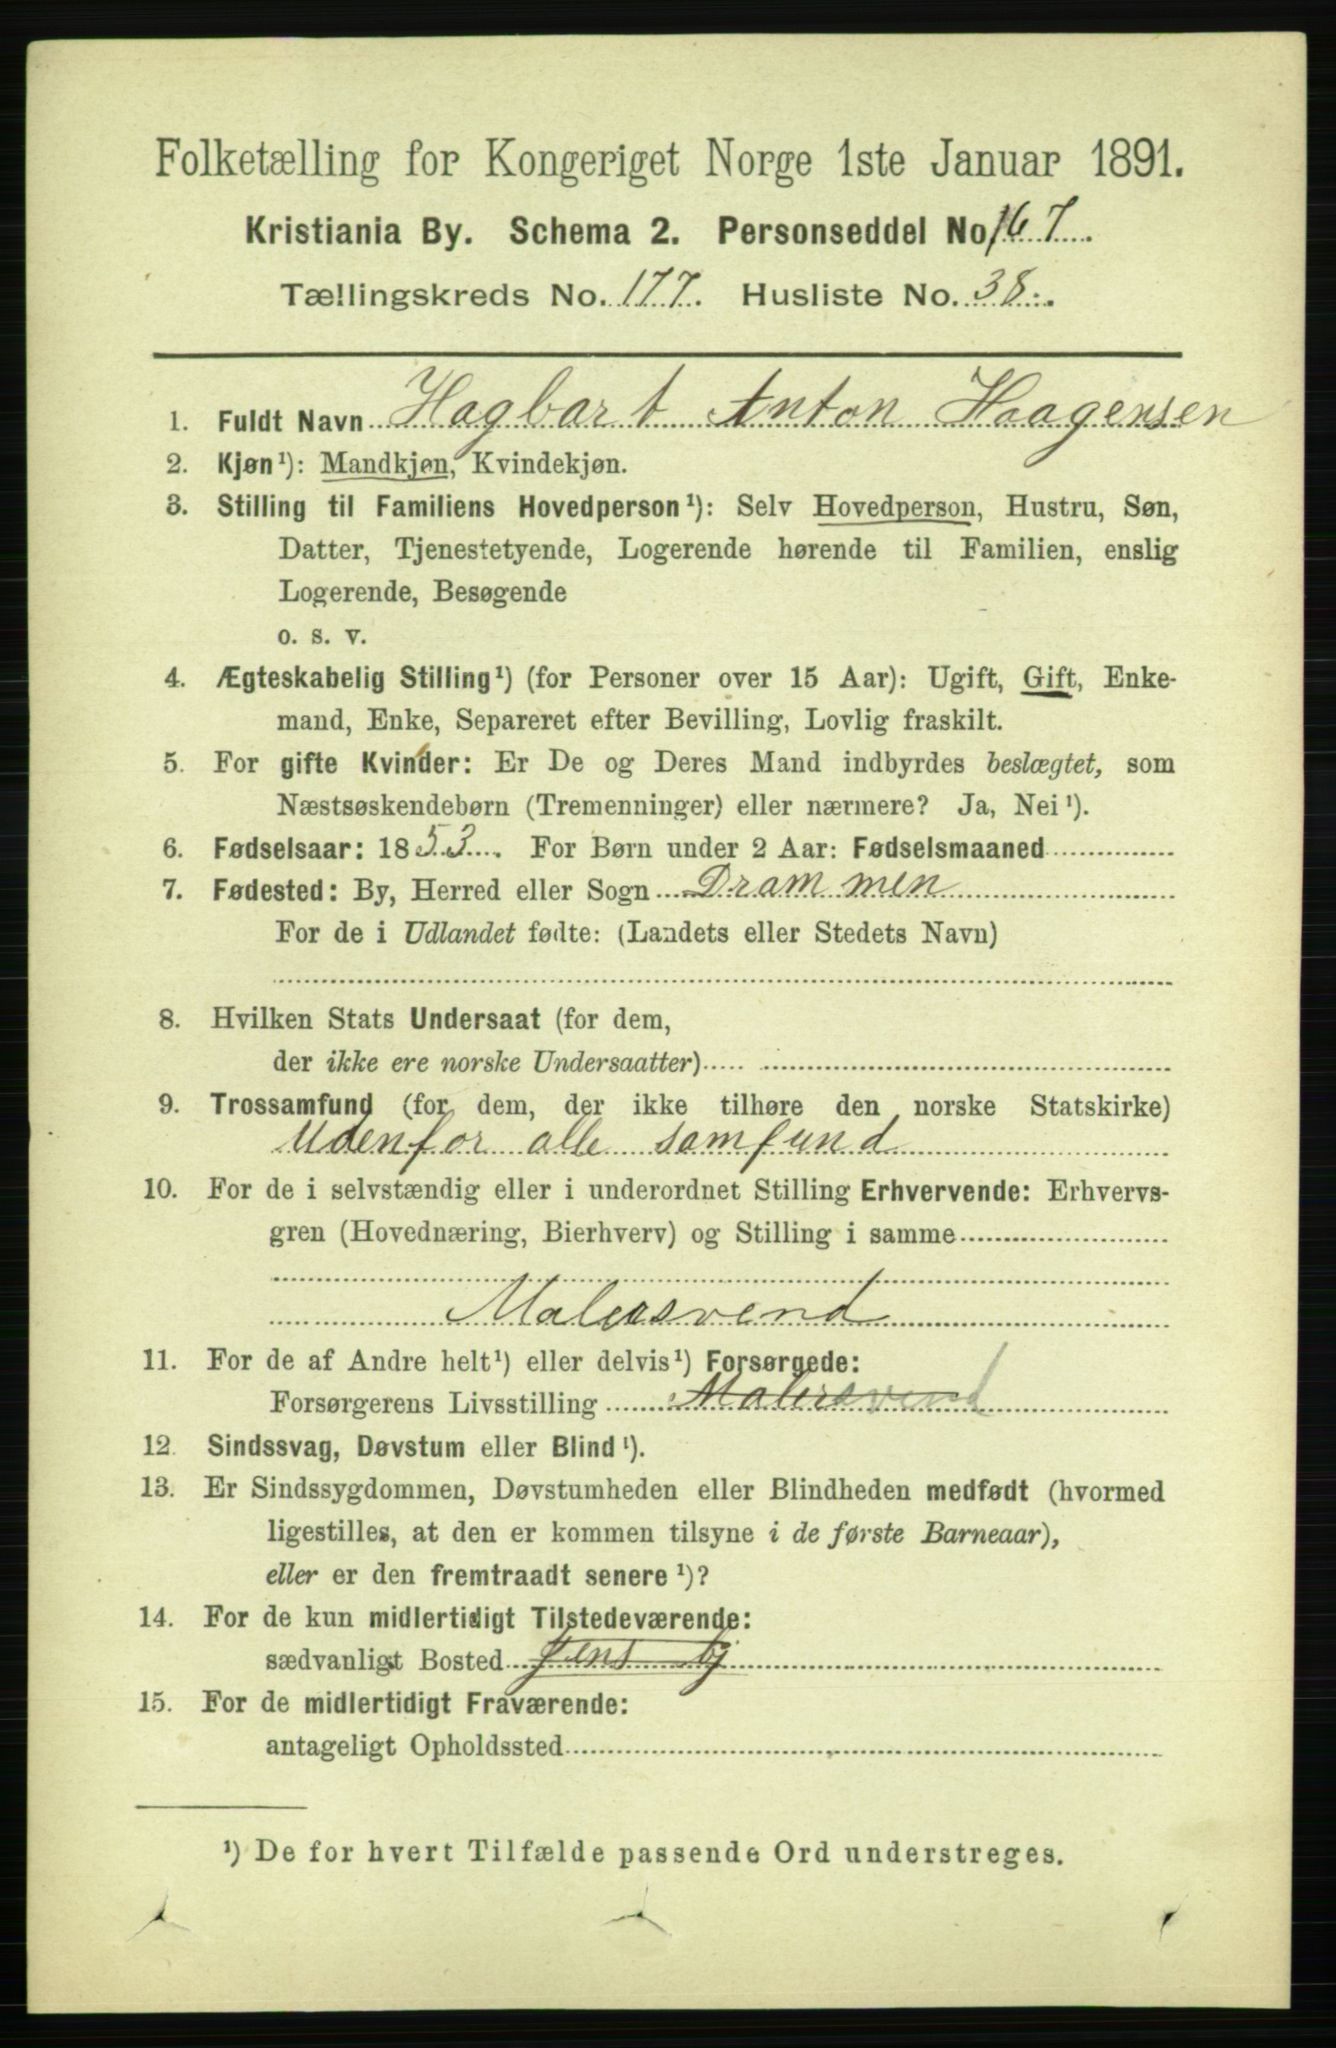 Folketælling for Kongeriget Norge 1ste Januar 1891.
Kristiania By. Schema 2. Personseddel No 167.
Tællingskreds No. 177. Husliste No. 38.
1. Fuldt Navn Hagbart Anton Haagensen
2. Kjøn¹): Mandkjøn, Kvindekjøn.
3. Stilling til Familiens Hovedperson¹): Selv Hovedperson, Hustru, Søn,
Datter, Tjenestetyende, Logerende hørende til Familien, enslig
Logerende, Besøgende
o. s. v.
4. Ægteskabelig Stilling¹) (for Personer over 15 Aar): Ugift, Gift, Enke-
mand, Enke, Separeret efter Bevilling, Lovlig fraskilt.
5. For gifte Kvinder: Er De og Deres Mand indbyrdes beslægtet, som
Næstsøskendebørn (Tremenninger) eller nærmere? Ja, Nei¹).
6. Fødselsaar: 1853. For Børn under 2 Aar: Fødselsmaaned
7. Fødested: By, Herred eller Sogn Drammen
For de i Udlandet fødte: (Landets eller Stedets Navn)
8. Hvilken Stats Undersaat (for dem,
der ikke ere norske Undersaatter)
9. Trossamfund (for dem, der ikke tilhøre den norske Statskirke)
Udenfor alle samfund
10. For de i selvstændig eller i underordnet Stilling Erhvervende: Erhvervs-
gren (Hovednæring, Bierhverv) og Stilling i samme
Malersvend
11. For de af Andre helt¹) eller delvis¹) Forsørgede:
Forsørgerens Livsstilling Malersvend
12. Sindssvag, Døvstum eller Blind¹).
13. Er Sindssygdommen, Døvstumheden eller Blindheden medfødt (hvormed
ligestilles, at den er kommen tilsyne i de første Barneaar),
eller er den fremtraadt senere¹)?
14. For de kun midlertidigt Tilstedeværende:
sædvanligt Bosted
15. For de midlertidigt Fraværende:
antageligt Opholdssted
¹) De for hvert Tilfælde passende Ord understreges.